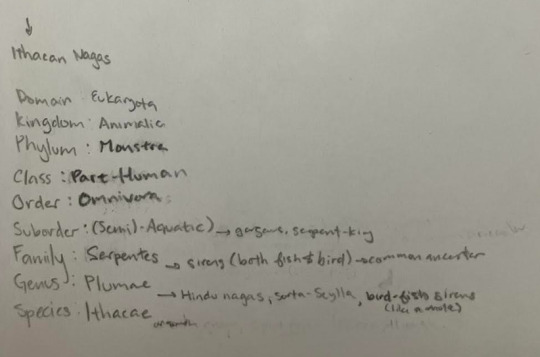 Ithacan Nagas
Domain: Eukaryota
Kingdom: Animalia
Phylum: Monstra
Class: Part-Human
Order: Omnivora
Suborder: (Semi)-Aquatic) → gorgons, serpent-king
Family: Serpentes → sirens (both fish & bird) → common ancestor
Genus: Plumae → Hindu nagas, sorta-Scylla, bird-fish sirens
(like a whole)
Species: Ithacae